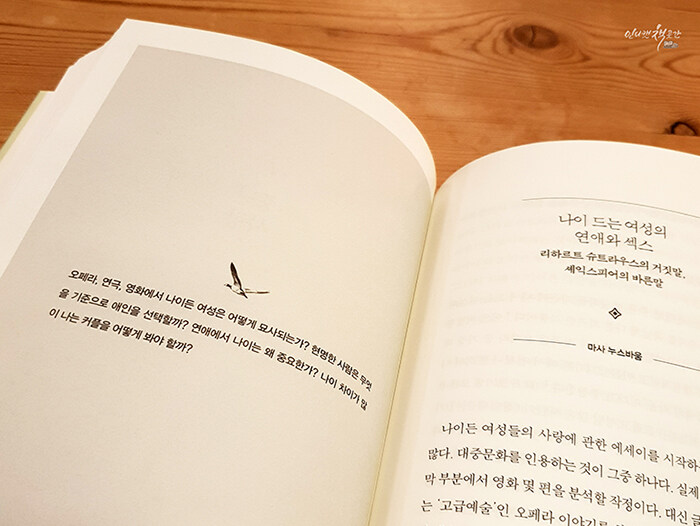 오페라, 연극, 영화에서 나이든 여성은 어떻게 묘사되는가? 현명한 사람은 무엇
을 기준으로 애인을 선택할까? 연애에서 나이는 왜 중요한가? 나이 차이가 많
이 나는 커플을 어떻게 봐야 할까?
나이 드는 여성의
연애와 섹스
리하르트 슈트라우스의 거짓말,
셰익스피어의 바른말
마사 누스바움
나이든 여성들의 사랑에 관한 에세이를 시작하
많다. 대중문화를 인용하는 것이 그중 하나다. 실제
막 부분에서 영화 몇 편을 분석할 작정이다. 대신
는 '고급예술'인 오페라 이야기로